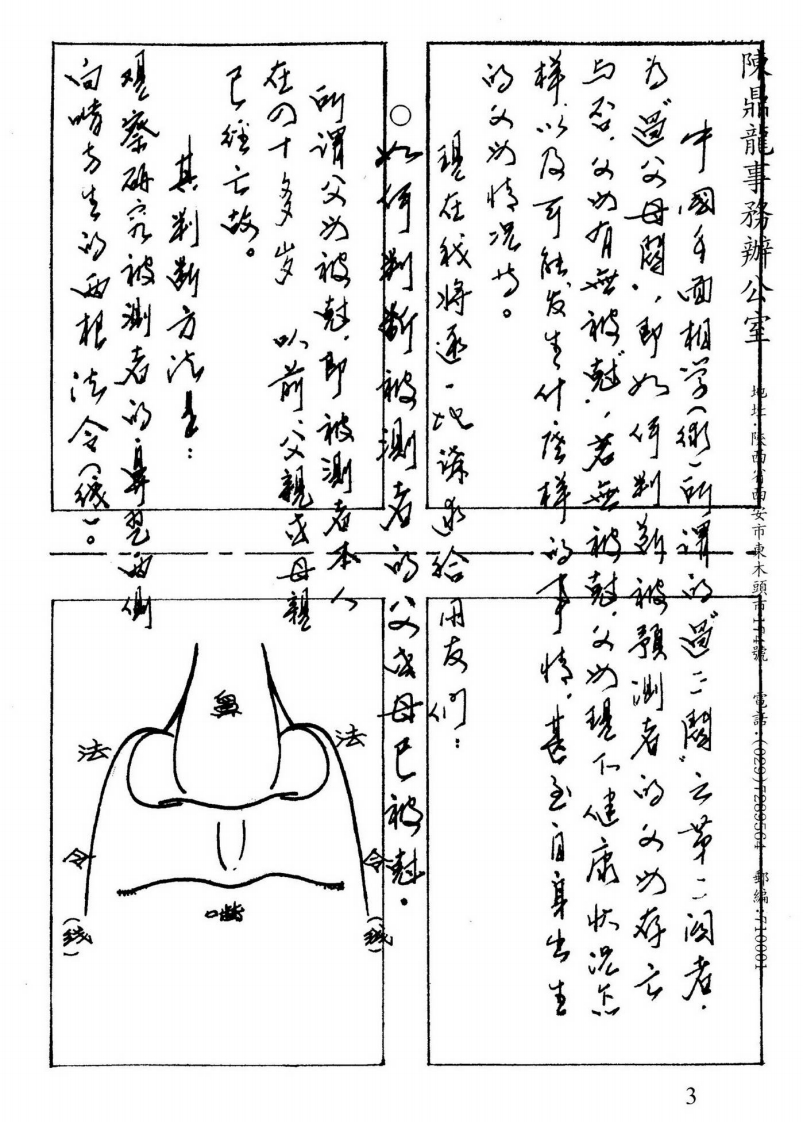 陳鼎龍事務辦公室 地址：陝西省西安市東木頭市 號 電話：(029)7289564 郵編：710001
中國手面相学(術)所謂的“過三關”之第二関者，
为“過父母關”，即如何判断被預測者的父母存亡
与否，父母有無被尅，若無被尅，父母現下健康狀況怎
样，以及可能发生什麽样的事情，甚至自身出生
的父母情况等。
現在我將逐一地講求給朋友们：
○如何判断被測者的父或母已被尅。
所謂父母被尅，即被測者本人
在四十多岁以前，父親或母親
已經亡故。
其判断方法是：
观察研究被測者的鼻翌两側
向嘴方生的两根法令(线)。
鼻
法
法
令
令
(线)
(线)
嘴
3